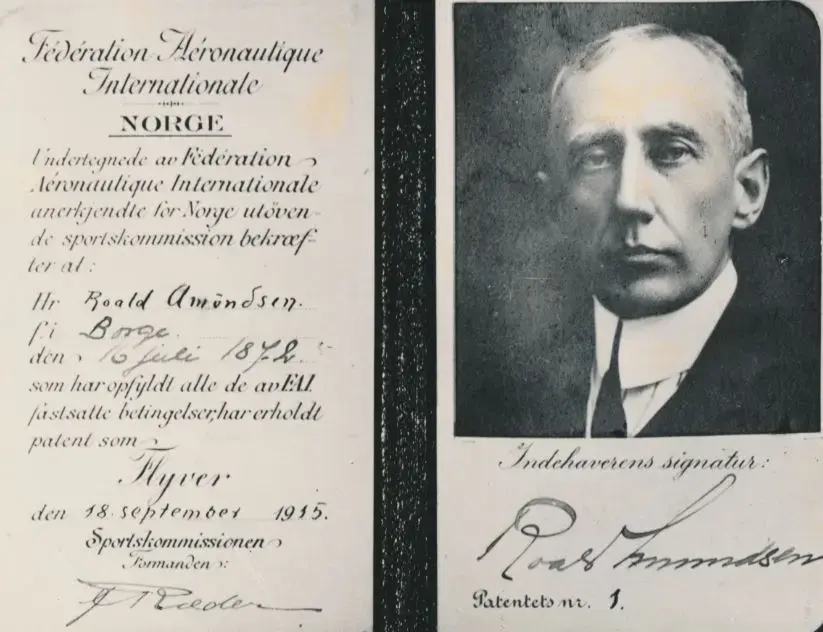 Fédération Aéronautique
Internationale
NORGE
Undertegnede av Fédération
Aéronautique Internationale
anerkjendte for Norge utöven-
de sportskommission bekræf-
ter at:
Hr Roald Amundsen.
f. i Borge.
den 16 juli 1872
som har opfyldt alle de av F.A.I.
fastsatte betingelser, har erholdt
patent som
Flyver
den 18 september 1915.
Sportskommissionen
Formanden:
Indehaverens signatur:
Roald Amundsen
Patentets nr. 1.